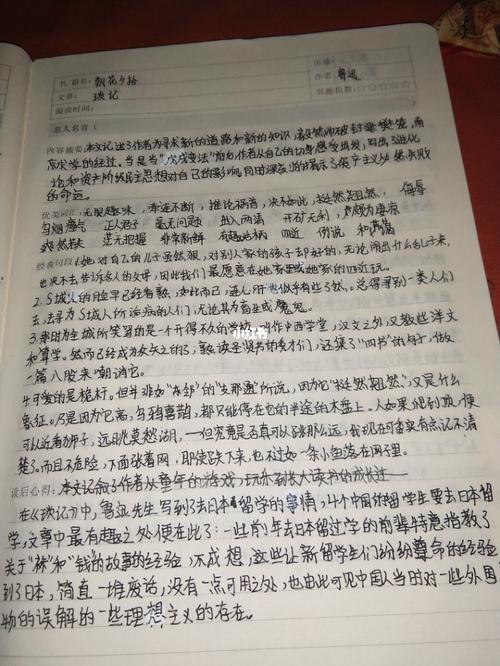 书/篇名: 朝花夕拾 出处:
文章: 琐记 作者: 鲁迅
阅读时间: 兴趣指数:☆☆☆☆☆
名人名言(
内容摘要:本文记述了作者为寻求新的道路和新的知识,毅然冲破封建樊笼,南
京求学的经过。当是当"戊戌变法"前后,作者从自己的切身感受出发,写出了进化
论和资产阶级民主思想对自己的影响,同时深刻的揭示了资产主义必然失败
的命运。
优美词汇: 无限趣味, 奇迹不断, 推论祸首, 决不如此, 挺然翘然, 侮辱
乌烟瘴气 正人君子 毫无问题 出入两清 开矿无利, 声威为唐凉
爽然若失 并无把握 非常新鲜 有趣地柄 四近 例说 和蔼
经典句段:1.她,对自己的儿子虽然狠,对别人家的孩子却好的,无论闹出什么乱子来,
也决不去告诉各人的父母,因此我们最愿意在她家里或她家的四近玩。
2.S城人的脸早已经看熟,如此而已,连心肝也似乎有些了然。总得寻别一类人们
去,去寻为S城人所诟病的人们,无论其为畜生或魔鬼。
3.那时为全城所笑骂的是一个开得不久的学校,叫作中西学堂,汉文之外,又教些洋文
和算学。然而已经成为众矢之的了,熟读圣贤书的秀才们,还集了"四书"的句子,做
一篇八股来嘲诮它。
4.可爱的是桅杆。但并非如"东邻"的"支那通"所说,因为它"挺然翘然",又是什么
象征。乃是因为它高,乌鸦喜鹊,都只能停在它的半途的木盘上。人如果爬到顶,便
可以近看狮子,远眺莫愁湖,一但究竟是否真可以眺那么远,我现在可委实有点记不清
楚了。而且不危险,下面张着网,即使跌下来,也不过如一条小鱼落在网子里。
读后心得: 本文记叙了作者从童年的游戏,玩乐到长大读书的成长过
在《琐记》中,鲁迅先生写到了去日本留学的事情,4个中国留学生要去日本留
学,文章中最有趣之处便在此了:一些前年去日本留过学的前辈特意指教了
关于"袜"和"钱"的故事的经验,不成想,这些让新留学生们纷纷尊命的经验
到了日本,简直一堆废话,没有一点可用之处,也由此可见中国人当时对一些外国
物的误解的一些理想主义的存在。
小红书